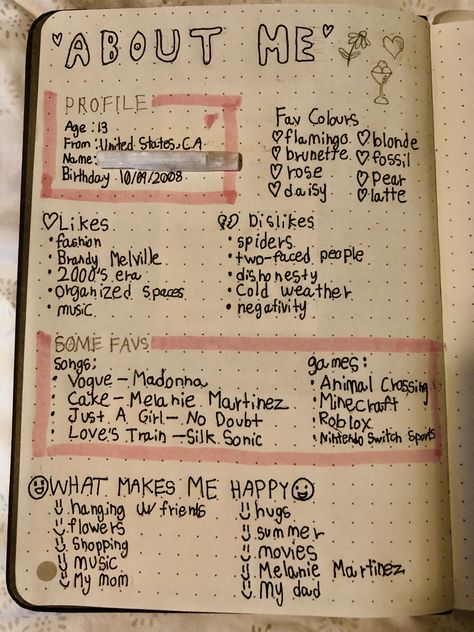 ABOUT ME
PROFILE
Age: 13
From: United States, C.A
Name:
Birthday 10/09/2008
Fav Colours
flamingo
brunette
rose
daisy
blonde
fossil
pear
latte
Likes
• fashion
• Brandy Melville
• 2000's era
• organized spaces
• music
Dislikes
• spiders
• two-faced people
• dishonesty
• Cold weather
• negativity
SOME FAVS
songs:
• Vogue - Madonna
• Cake - Melanie Martinez
• Just A Girl - No Doubt
• Love's Train - Silk Sonic
games:
• Animal Crossing
• Minecraft
• Roblox
• Nintendo Switch Sports
WHAT MAKES ME HAPPY
hanging w/ friends
flowers
Shopping
music
My mom
hugs
summer
movies
Melanie Martinez
my dad